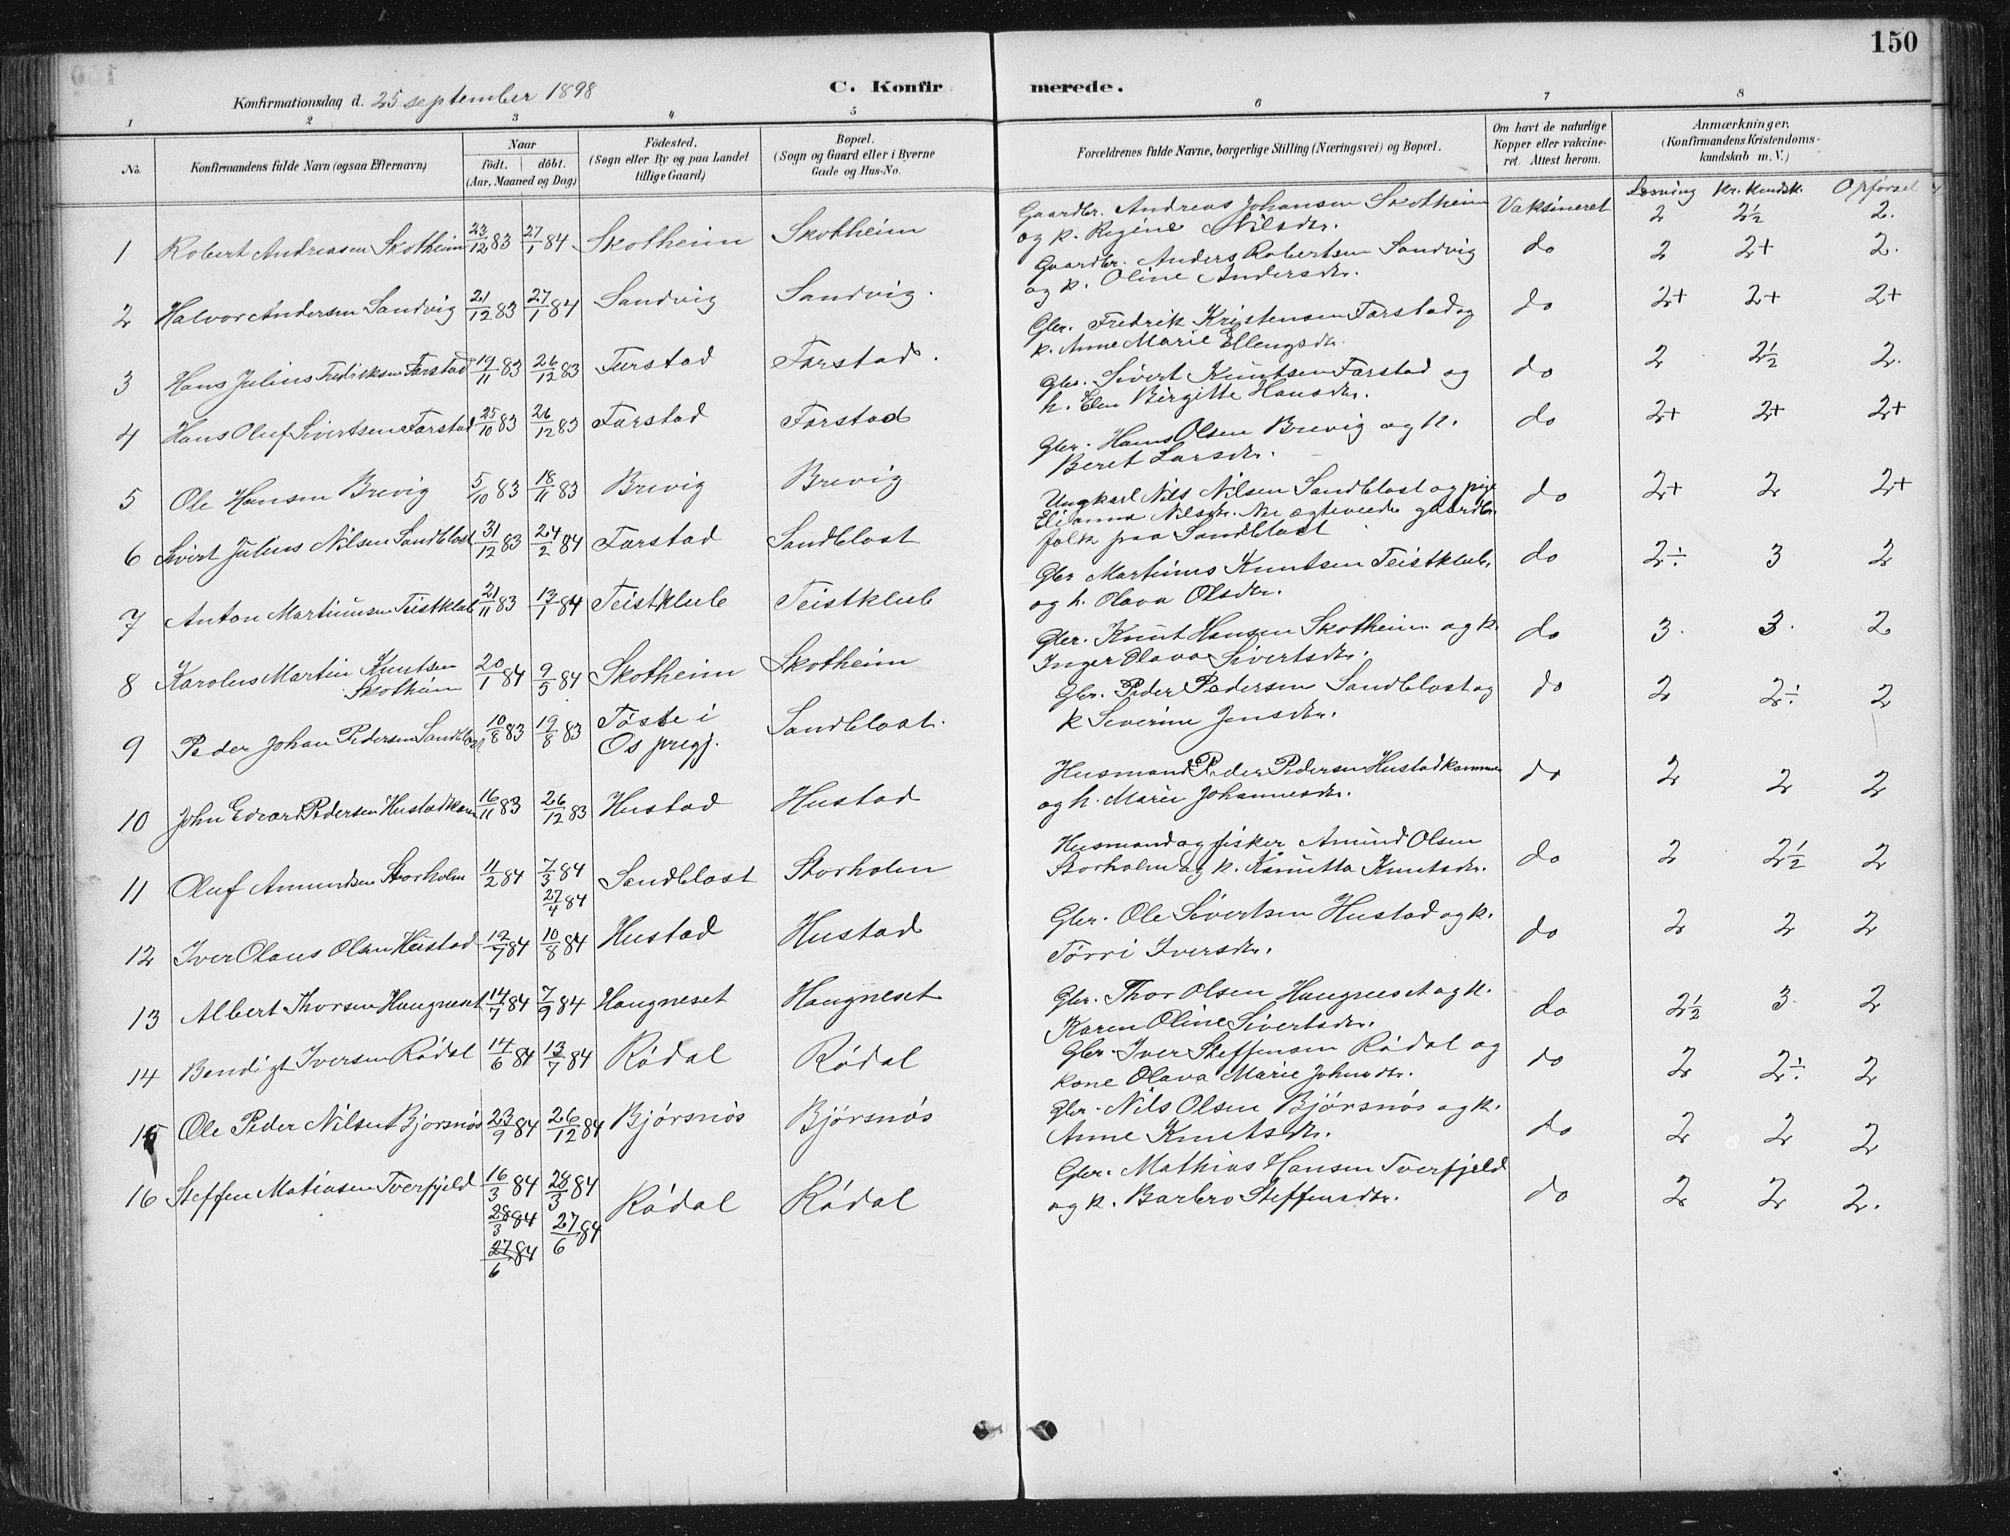 150
Konfirmationsdag d. 25 september 1898
C. Konfir merede.
1 2 3 4 5 6 7 8
No. Konfirmandens fulde Navn (ogsaa Efternavn) Naar født. døbt. (Aar, Maaned og Dag) Fødested. (Sogn eller By og paa Landet tillige Gaard) Bopæl. (Sogn og Gaard eller i Byerne Gade og Hus-No. Forældrenes fulde Navne, borgerlige Stilling (Næringsvei) og Bopæl. Om havt de naturlige Kopper eller vakcineret. Attest herom. Anmærkninger. (Konfirmandens Kristendomskundskab m. V.)
Læsning Kr. Kundsk. Opførsel
1 Robert Andreasen Skotheim 23/12 83 27/1 84 Skotheim Skotheim Gaardbr. Andreas Johansen Skotheim Vaksineret 2 2½ 2.
og k. Regine Nilsdr.
2 Halvor Andersen Sandvig 21/12 83 27/1 84 Sandvig Sandvig. Gaardbr. Anders Robertsen Sandvig do 2 2+ 2.
og k. Oline Andersdr.
3 Hans Julius Fredriksen Farstad 19/11 83 26/12 83 Farstad Farstad. Gbr. Fredrik Kristensen Farstad og do 2+ 2+ 2+
k. Anne Marie Ellengsdr.
4 Hans Oluf Sivertsen Farstad 25/10 83 26/12 83 Farstad Farstad Gbr. Sivert Knutsen Farstad og do 2 2½ 2.
h. Elen Birgitte Hansdr.
5 Ole Hansen Brevig 5/10 83 18/11 83 Brevig Brevig Gbr. Hans Olsen Brevig og k. do 2+ 2+ 2+
Beret Larsdr.
6 Sivert Julius Nilsen Sandblost 31/12 83 24/2 84 Farstad Sandblost Ungkarl Nils Nilsen Sandblost og pige do 2+ 2 2+
Elianna Nilsdr. Nu egteviede gaardbr.
folk paa Sandblost
7 Anton Martinusen Teistklub 21/11 83 13/1 84 Teistklub Teistklub Gbr Martinus Knutsen Teistklub, do 2÷ 3 2
og h. Olava Olsdr.
8 Karolus Martin Knutsen 20/1 84 9/5 84 Skotheim Skotheim Gbr. Knut Hansen Skotheim og k. do 3. 3. 2
Skotheim Inger Olava Sivertsdr.
9 Peder Johan Pedersen Sandblost 10/8 83 19/8 83 Tøsse i Sandblost. Gbr. Peder Pedersen Sandblost og do 2 2÷ 2
Os pregj. k Severine Jensdr.
10 John Edvard Pedersen Hustadkam 16/11 83 26/12 83 Hustad Hustad Husmand Peder Pedersen Hustadkammen do 2 2 2
og h. Marie Johannesdr.
11 Oluf Amundsen Storholm 11/2 84 7/3 84 Sandblost Storholm Husmand og fisker Amund Olsen do 2 2½ 2
27/4 84 Storholm og k. Kanutta Knutsdr.
12 Iver Olaus Olsen Hustad 12/7 84 10/8 84 Hustad Hustad Gbr. Ole Sivertsen Hustad og k. do 2 2 2
Tørri Iversdr.
13 Albert Thorsen Haugneset 14/7 84 7/9 84 Haugneset Haugneset Gbr. Thor Olsen Haugneset og k. do 2½ 3. 2
Karen Oline Sivertsdr.
14 Bendigt Iversen Rødal 14/6 84 13/7 84 Rødal Rødal Gbr. Iver Steffensen Rødal og do 2 2÷ 2
kone Olava Marie Johnsdr.
15 Ole Peder Nilsen Bjørsnøs 23/9 84 26/12 84 Bjørsnøs Bjørsnøs Gbr. Nils Olsen Bjørsnøs og k. do 2 2 2
Anne Knutsdr.
16 Steffen Matiasen Tverfjeld 16/3 84 28/3 84 Rødal Rødal Gbr. Mathias Hansen Tverfjeld do 2 2 2.
28/3 84 27/6 84 og k. Barbro Steffensdr.
27/6 84